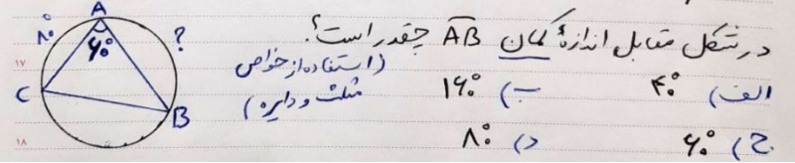 در شکل مقابل اندازهٔ کمان AB چقدر است؟
(استفاده از خواص
مثلث و دایره)
الف) ۴۰°
ب) ۱۶۰°
ج) ۶۰°
د) ۸۰°
A
۸۰°
۶۰°
?
C
B
۱۷
۱۸